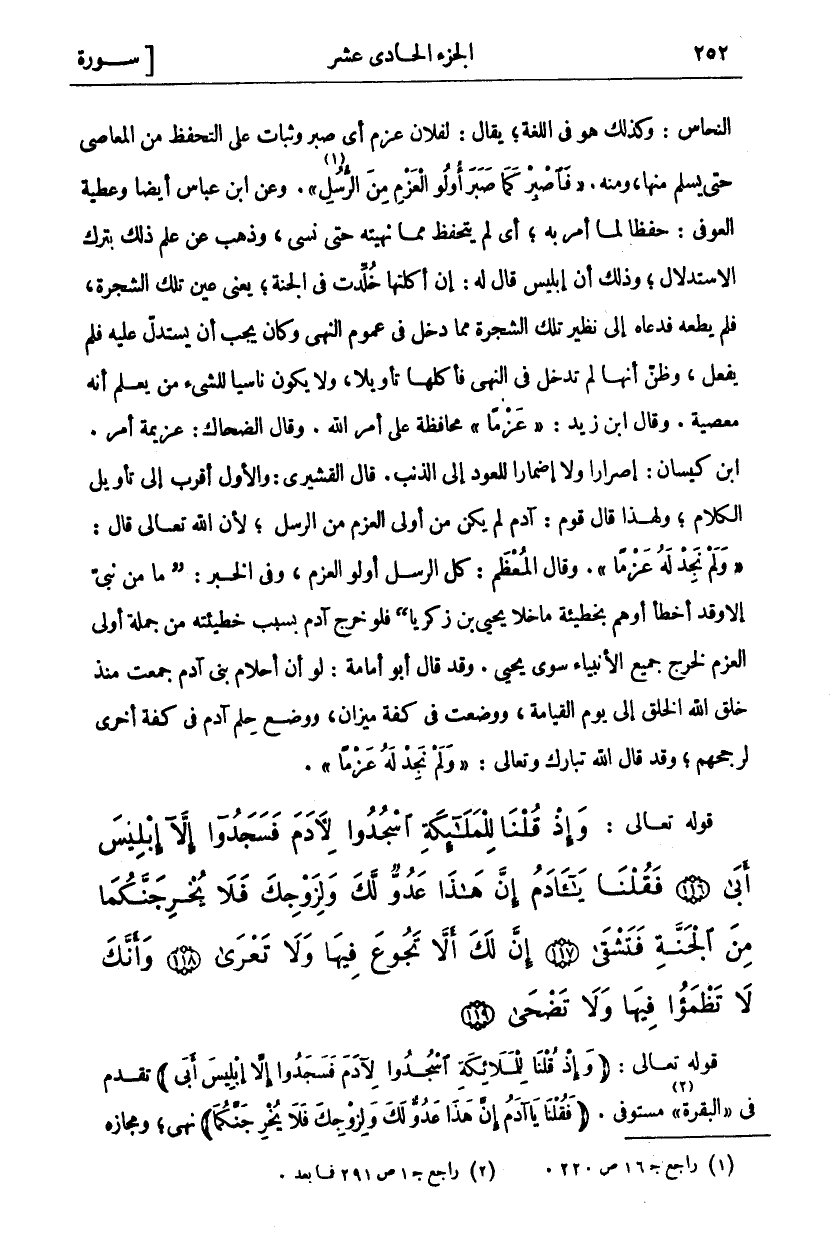 ٢٥٢ الجزء الحادى عشر [ سورة
النحاس : وكذلك هو فى اللغة؛ يقال : لفلان عزم أى صبر وثبات على التحفظ من المعاصى
حتى يسلم منها، ومنه. «فَٱصْبِرْ كَمَا صَبَرَ أُولُو الْعَزْمِ مِنَ الرُّسُلِ»(١). وعن ابن عباس أيضا وعطية
العوفى : حفظا لما أمر به ؛ أى لم يتحفظ مما نهيته حتى نسى ، وذهب عن علم ذلك بترك
الاستدلال ؛ وذلك أن إبليس قال له : إن أكلتها خُلِّدت فى الجنة ؛ يعنى عين تلك الشجرة ،
فلم يطعه فدعاه إلى نظير تلك الشجرة مما دخل فى عموم النهى وكان يجب أن يستدلّ عليه فلم
يفعل ، وظنّ أنها لم تدخل فى النهى فأكلها تأويلا ، ولا يكون ناسيا للشىء من يعلم أنه
معصية . وقال ابن زيد : « عَزْمًا » محافظة على أمر الله . وقال الضحاك : عزيمة أمر .
ابن كيسان : إصرارا ولا إضمارا للعود إلى الذنب. قال القشيرى : والأول أقرب إلى تأويل
الكلام ؛ ولهذا قال قوم : آدم لم يكن من أولى العزم من الرسل ؛ لأن الله تعالى قال :
« وَلَمْ نَجِدْ لَهُ عَزْمًا ». وقال المُعْظَم : كل الرسل أولو العزم ، وفى الخبر : ” ما من نبىّ
إلا وقد أخطأ أو هم بخطيئة ما خلا يحيى بن زكريا “ فلو خرج آدم بسبب خطيئته من جملة أولى
العزم لخرج جميع الأنبياء سوى يحيى . وقد قال أبو أمامة : لو أن أحلام بنى آدم جمعت منذ
خلق الله الخلق إلى يوم القيامة ، ووضعت فى كفة ميزان ، ووضع حِلم آدم فى كفة أخرى
لرجحهم ؛ وقد قال الله تبارك وتعالى : « وَلَمْ نَجِدْ لَهُ عَزْمًا » .
قوله تعالى : وَإِذْ قُلْنَا لِلْمَلَٰٓئِكَةِ ٱسْجُدُوا لِأَدَمَ فَسَجَدُوٓا إِلَّآ إِبْلِيسَ
أَبَىٰ ١١٦ فَقُلْنَا يَٰٓـَٔادَمُ إِنَّ هَٰذَا عَدُوٌّ لَّكَ وَلِزَوْجِكَ فَلَا يُخْرِجَنَّكُمَا
مِنَ ٱلْجَنَّةِ فَتَشْقَىٰٓ ١١٧ إِنَّ لَكَ أَلَّا تَجُوعَ فِيهَا وَلَا تَعْرَىٰ ١١٨ وَأَنَّكَ
لَا تَظْمَؤُا فِيهَا وَلَا تَضْحَىٰ ١١٩
قوله تعالى : ﴿ وَإِذْ قُلْنَا لِلْمَلَائِكَةِ ٱسْجُدُوا لِآدَمَ فَسَجَدُوا إِلَّا إِبْلِيسَ أَبَى ﴾ تقدم
فى «البقرة»(٢) مستوفى . ﴿ فَقُلْنَا يَاآدَمُ إِنَّ هَذَا عَدُوٌّ لَكَ وَلِزَوْجِكَ فَلَا يُخْرِجَنَّكُمَا﴾ نهى؛ ومجازه
(١) راجع جـ ١٦ ص ٢٢٠ . (٢) راجع جـ ١ ص ٢٩١ فما بعد .